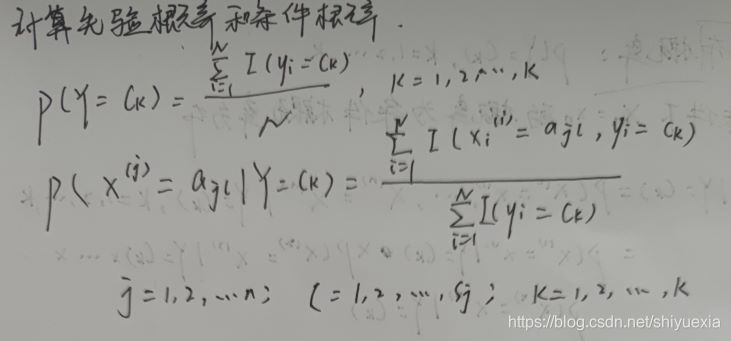 计算先验概率和条件概率.
P(Y=Ck) = \frac{\sum_{i=1}^{N} I(yi=Ck)}{N}, K=1,2,…,K
P(X^{(j)}=ajl|Y=Ck) = \frac{\sum_{i=1}^{N} I(xi^{(j)}=ajl, yi=Ck)}{\sum_{i=1}^{N} I(yi=Ck)}
j=1,2,…n; l=1,2,…,Sj; K=1,2,…,K
https://blog.csdn.net/shiyuexia